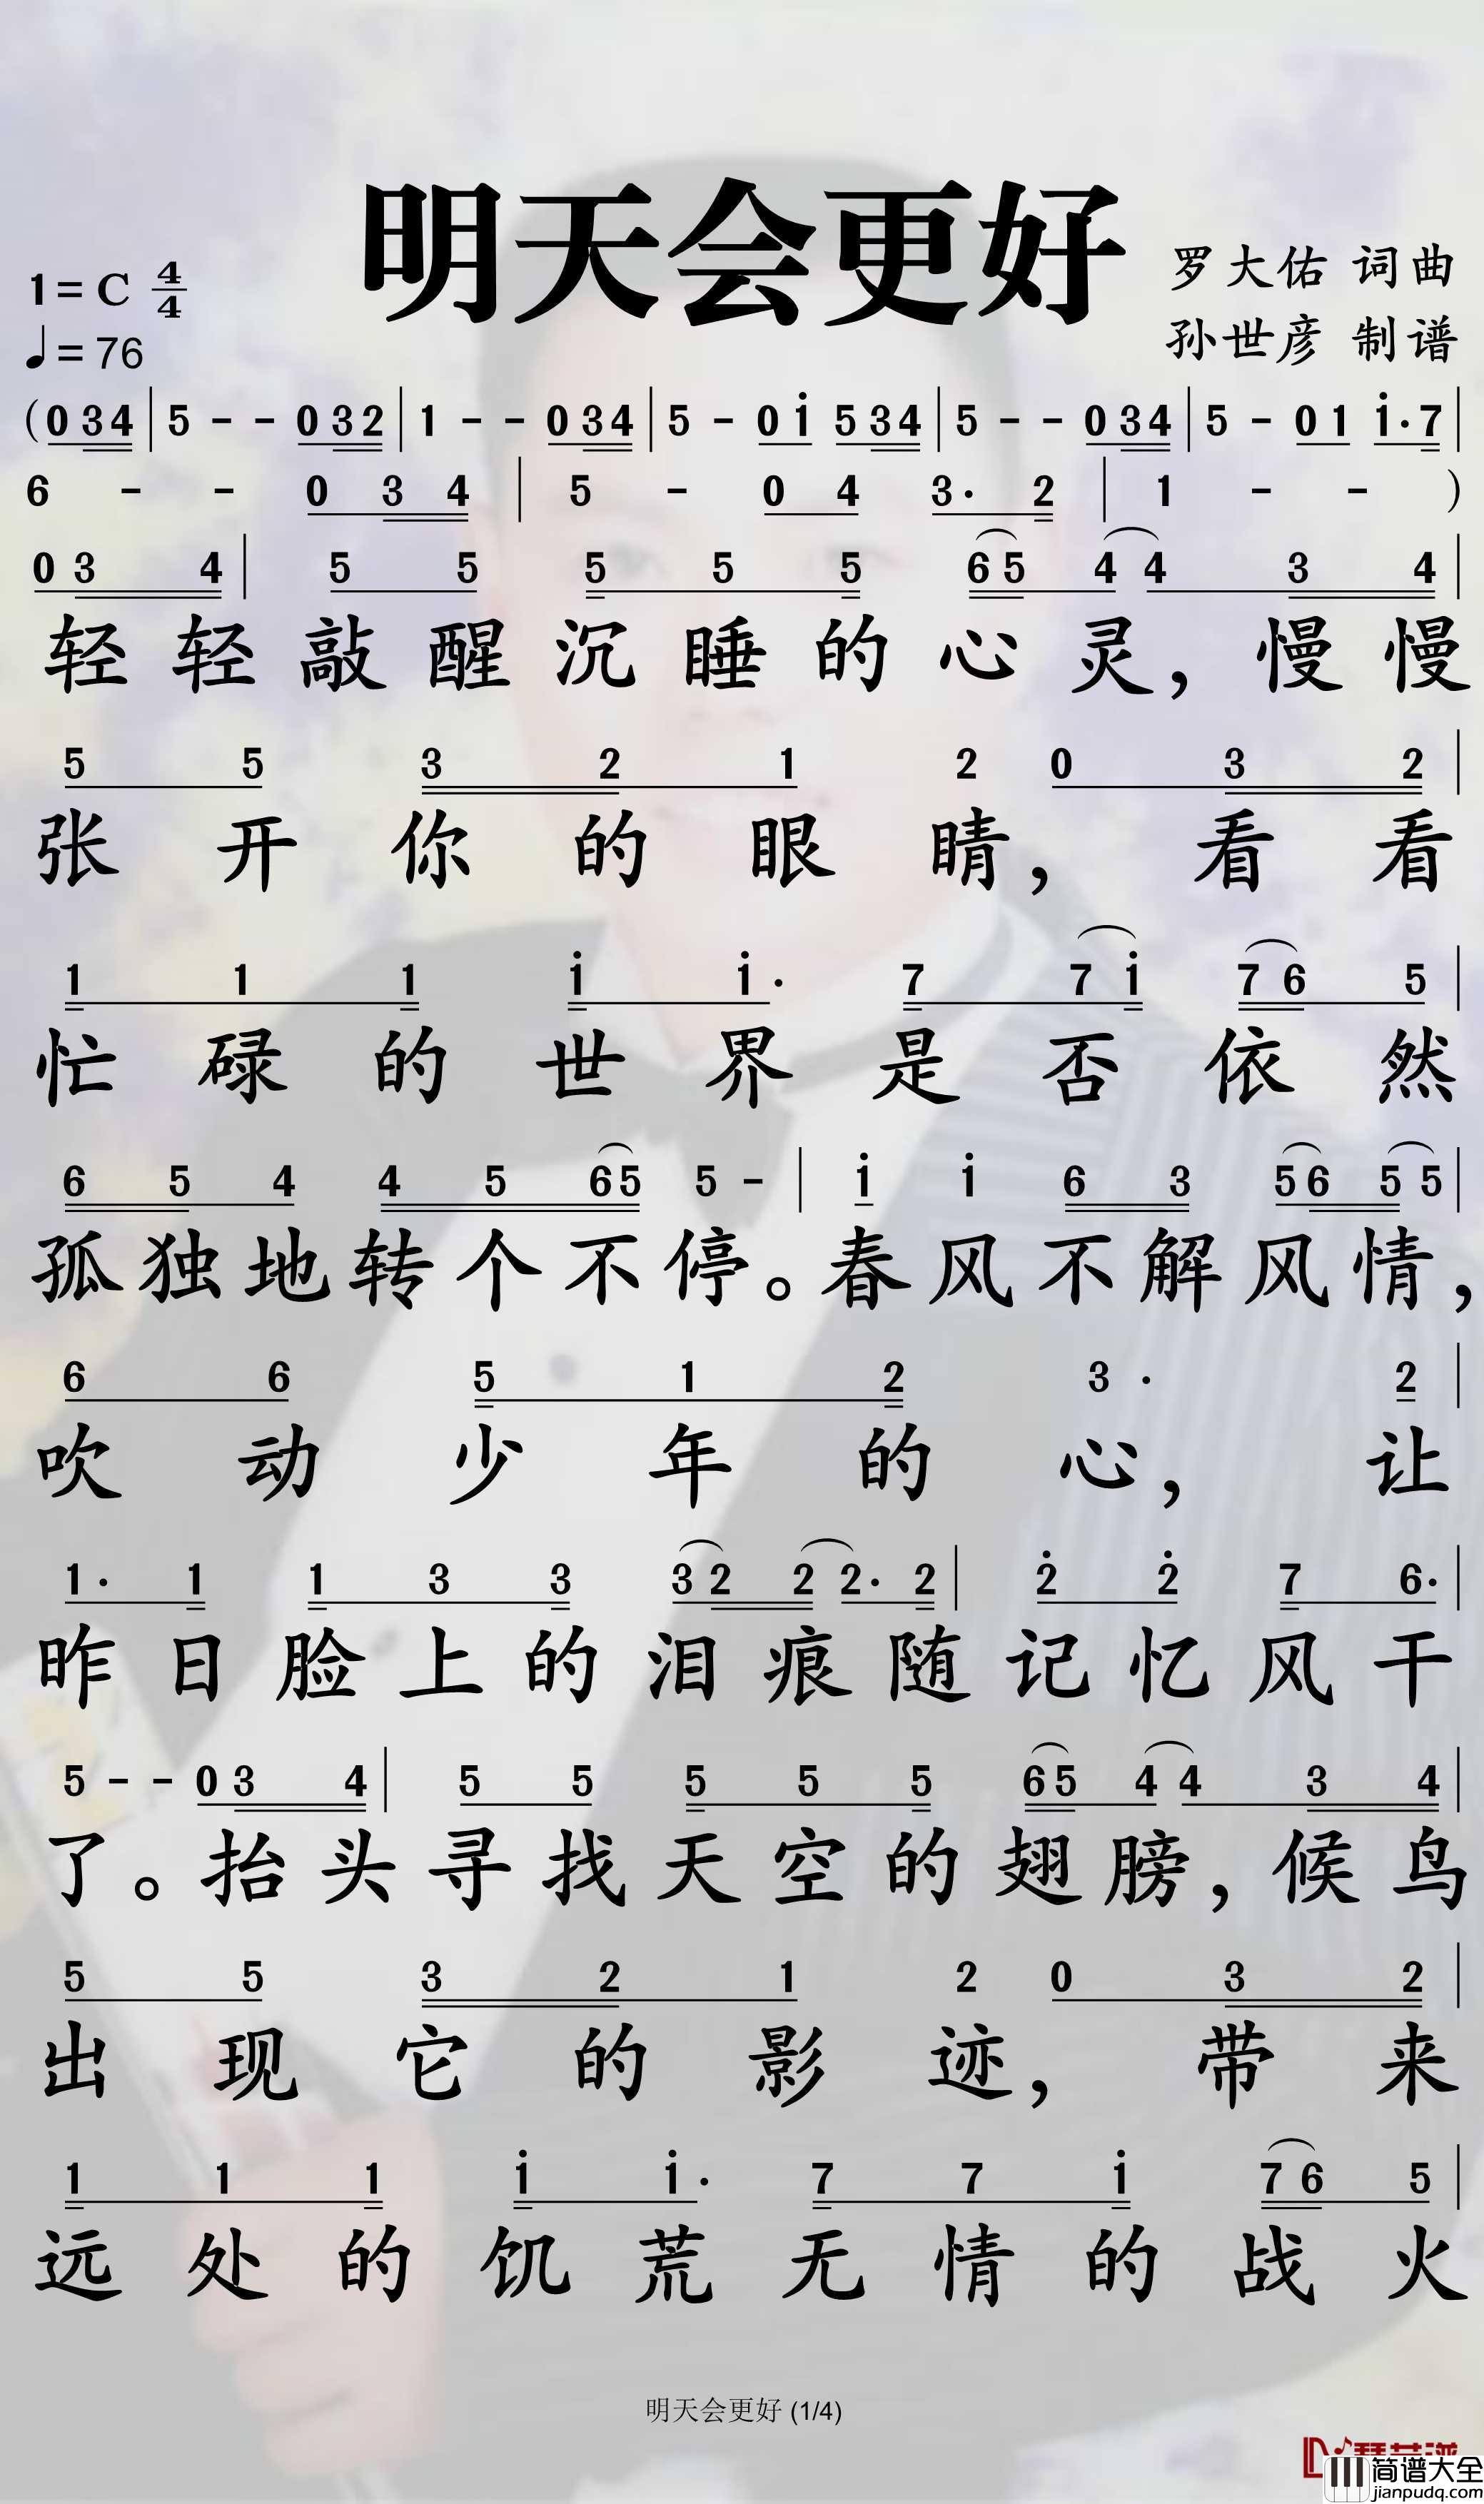 明天会更好
罗大佑 词曲
孙世彦 制谱
1=C 4/4
♩=76
(0 3 4 | 5 - - 0 3 2 | 1 - - 0 3 4 | 5 - 0 i 5 3 4 | 5 - - 0 3 4 | 5 - 0 1 i· 7 |
6 - - 0 3 4 | 5 - 0 4 3· 2 | 1 - - )
0 3 4 | 5 5 5 5 5 6 5 4 4 3 4 |
轻轻敲醒沉睡的心灵，慢慢
5 5 3 2 1 2 0 3 2 |
张开你的眼睛，看看
1 1 1 i i· 7 7 i 7 6 5 |
忙碌的世界是否依然
6 5 4 4 5 6 5 5 - | i i 6 3 5 6 5 5 |
孤独地转个不停。春风不解风情，
6 6 5 1 2 3· 2 |
吹动少年的心，让
1· 1 1 3 3 3 2 2 2· 2 | 2̇ 2̇ 7 6· |
昨日脸上的泪痕随记忆风干
5 - - 0 3 4 | 5 5 5 5 5 6 5 4 4 3 4 |
了。抬头寻找天空的翅膀，候鸟
5 5 3 2 1 2 0 3 2 |
出现它的影迹，带来
1 1 1 i i· 7 7 i 7 6 5 |
远处的饥荒无情的战火
明天会更好 (1/4)
简谱大全
jianpudq.com